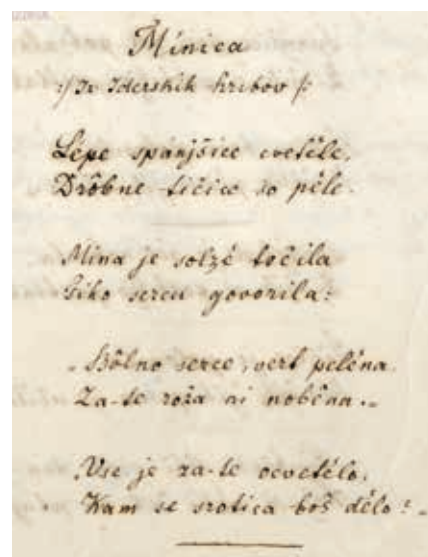 Minica
:/Iz Iderskih hribov/:
Lépe spanjšice cvetéle,
Drôbne tičice so péle.
Mina je solzé točila
Tiho sercu govorila:
„Bôlno serce, vert peléna.
Za-te roža ni nobêna.„
„Vse je za-te ocvetélo,
Kam se srotica boš délo?„